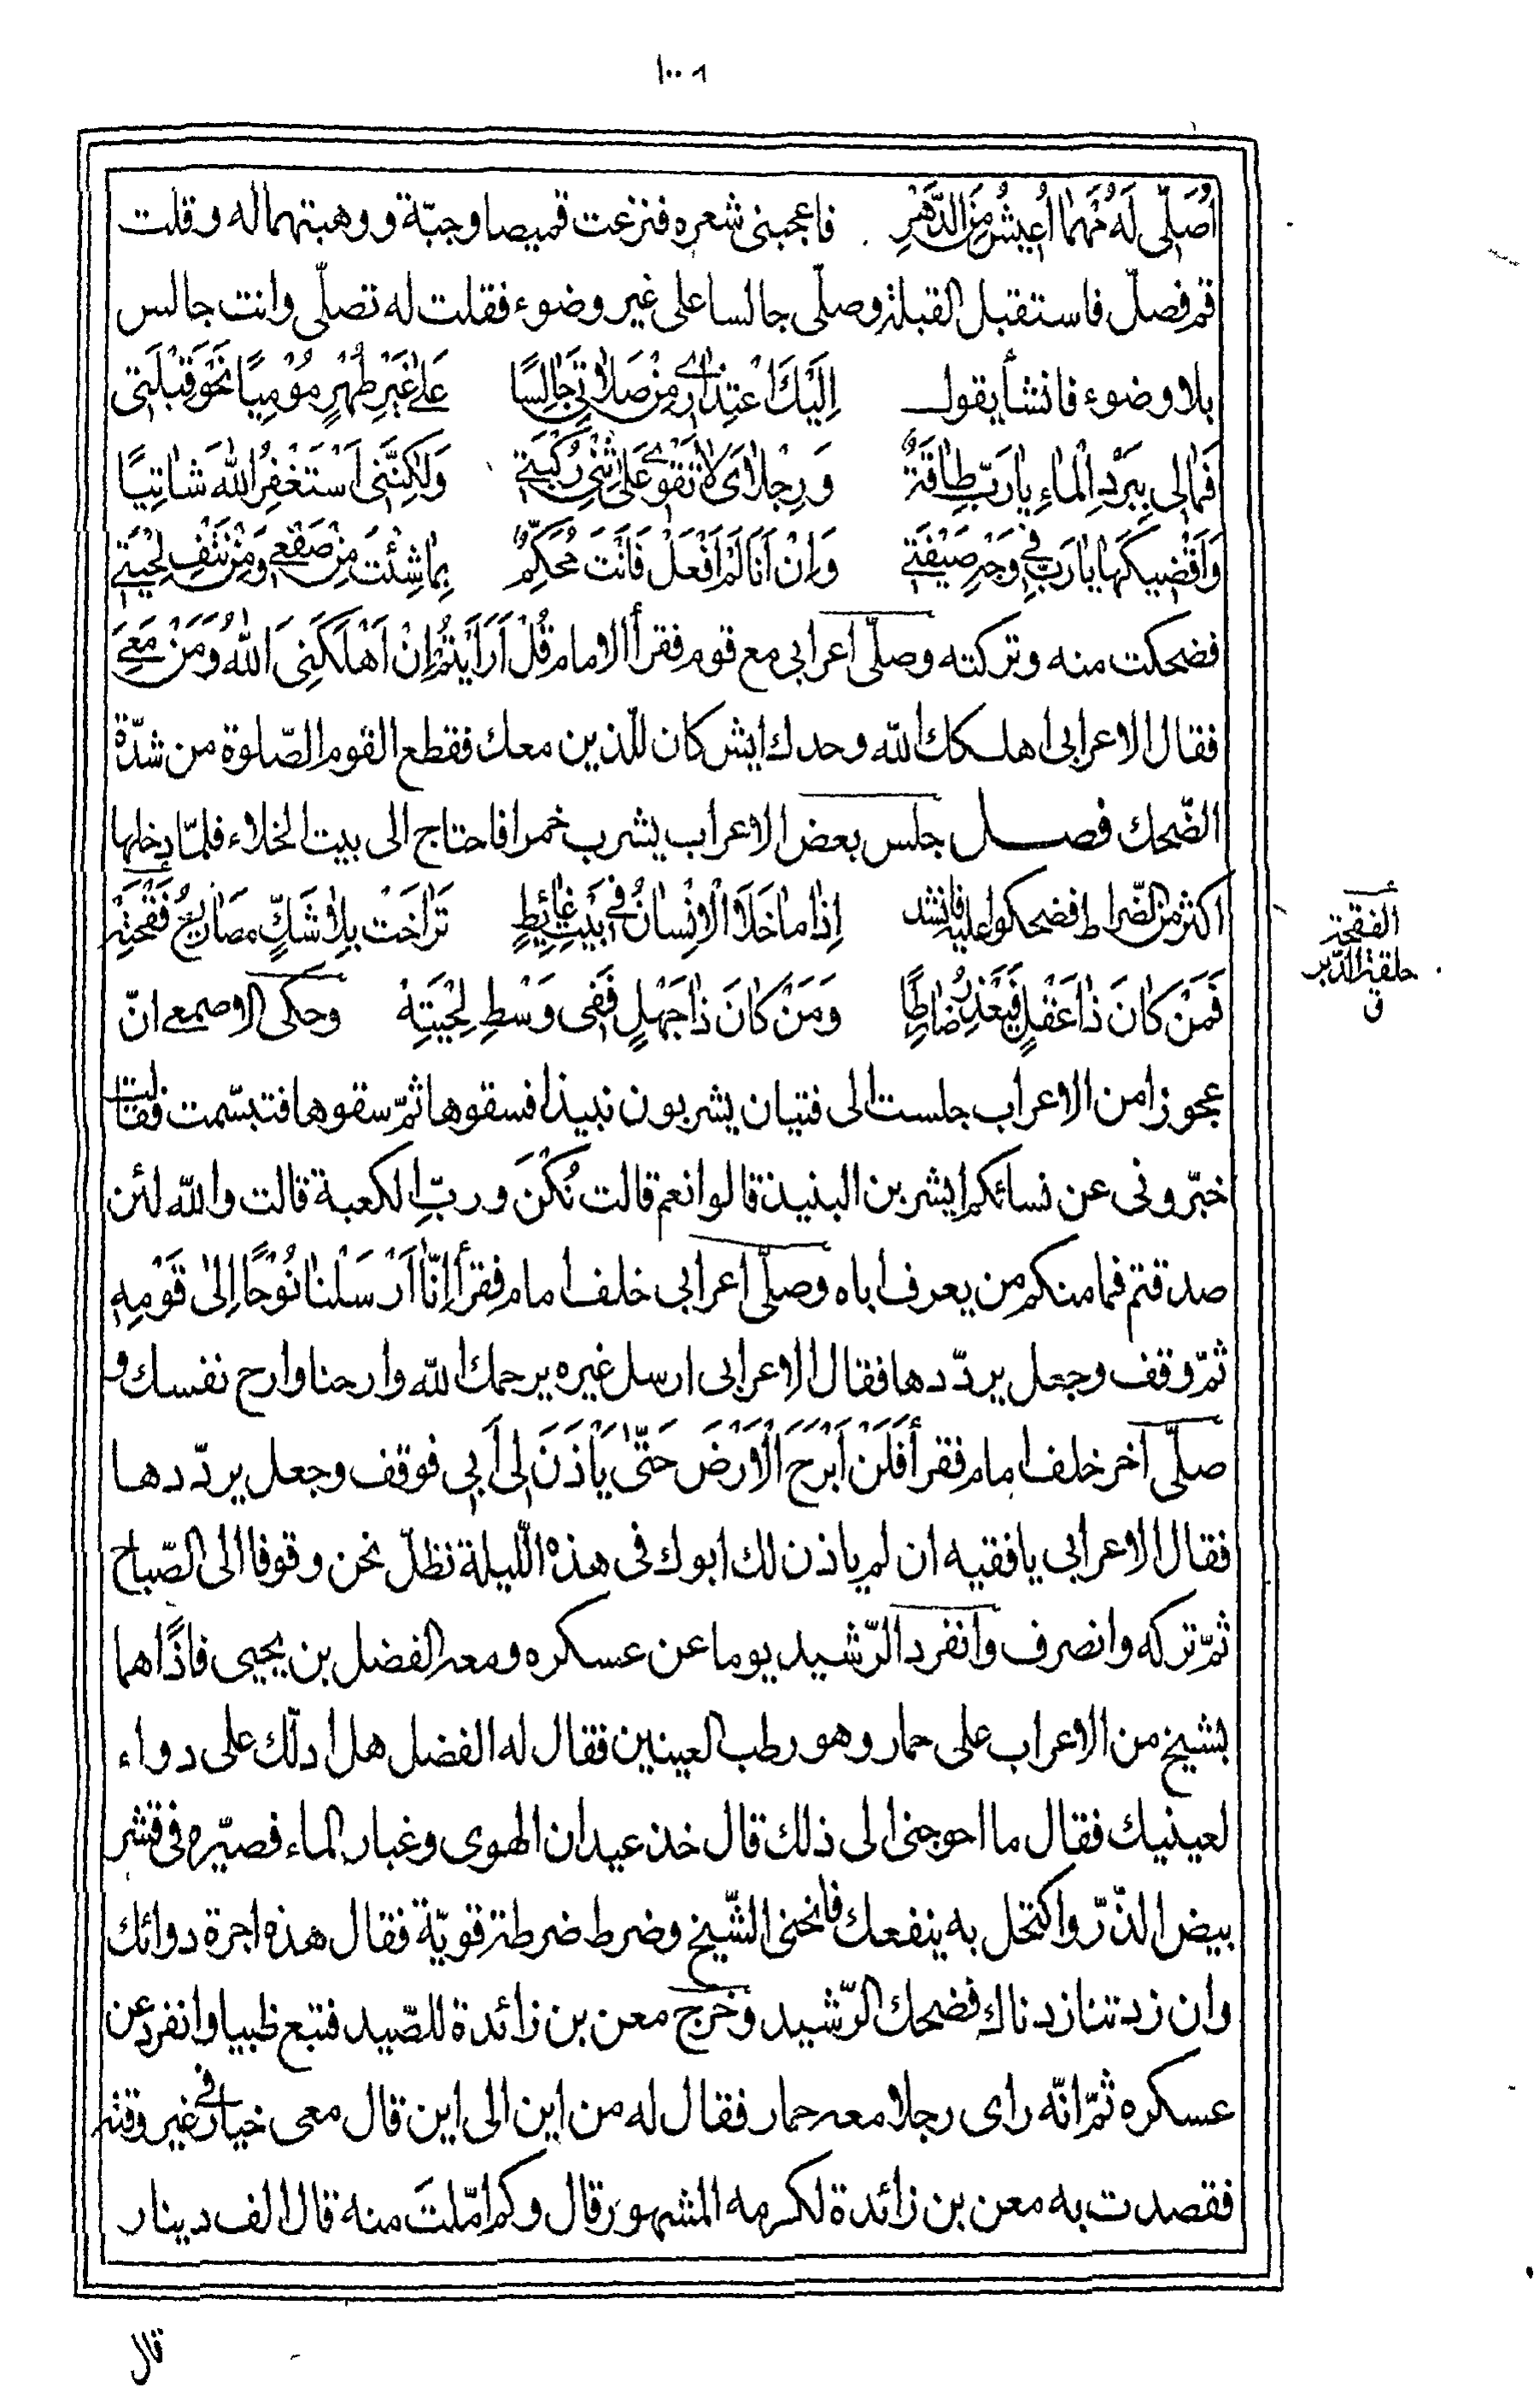 ١٠٠٨
اُصَلّى لَهُ مَهْما اُعِيشُ مِنَ الدَّهْرِ فاعجبنى شعره فنزعت قميصا وجبّة ووهبتهما له وقلت
قم فصلّ فاستقبل القبلة وصلّى جالسا على غير وضوء فقلت له تصلّى وانت جالس
بلا وضوء فانشأ يقول اِلَيْكَ اعْتِذارى مِنْ صَلاتى جالِسًا عَلى غَيْرِ طُهْرٍ مُوْمِيًا نَحْوَ قِبْلَتى
فَمالى بِبَرْدِ الْماءِ يا رَبّ طاقَةٌ وَرِجْلاىَ لا تَقْوى عَلى ثَنْىِ رُكْبَتى وَلكِنَّنى اَسْتَغْفِرُ اللهَ شاتِيًا
وَاَقْضيكَها يا رَبّ فى وَجْهِ صَيْفَتى وَاِنْ اَنَا لَمْ اَفْعَلْ فَاَنْتَ مُحَكَّمٌ بِما شِئْتَ مِنْ صَفْعى وَمِنْ نَتْفِ لِحْيَتى
فضحكت منه وتركته وصلّى اعرابى مع قوم فقرأ الامام قُلْ اَرَاَيْتُمْ اِنْ اَهْلَكَنِىَ اللهُ وَمَنْ مَعِىَ
فقال الاعرابى اهلكك الله وحدك ايش كان للّذين معك فقطع القوم الصّلوة من شدّة
الضّحك فصل جلس بعض الاعراب يشرب خمرا فاحتاج الى بيت الخلاء فلمّا دخلها
اكثر من الضّراط فضحكوا عليه فانشد اِذا ما خَلَا الْاِنْسانُ فى بَيْتِ غائِطٍ تَراخَتْ بِلا شَكٍّ مَصاريعُ فَقْحَتِهْ
فَمَنْ كانَ ذا عَقْلٍ فَيَعْذِرُ ضارِطًا وَمَنْ كانَ ذا جَهْلٍ فَفى وَسْطِ لِحْيَتِهْ وحكى الاصمعى انّ
عجوزا من الاعراب جلست الى فتيان يشربون نبيذا فسقوها ثمّ سقوها فتبسّمت فقالت
خبّرونى عن نسائكم ايشربن البنيذ قالوا نعم قالت نُكْنَ وربّ الكعبة قالت والله لئن
صدقتم فما منكم من يعرف اباه وصلّى اعرابى خلف امام فقرأ اِنّا اَرْسَلْنا نُوْحًا اِلى قَوْمِهِ
ثمّ وقف وجعل يردّدها فقال الاعرابى ارسل غيره يرحمك الله وارحنا وارح نفسك و
صلّى اخر خلف امام فقرأ فَلَنْ اَبْرَحَ الْاَرْضَ حَتّى يَأْذَنَ لى اَبى فوقف وجعل يردّدها
فقال الاعرابى يا فقيه ان لم ياذن لك ابوك فى هذه اللّيلة نظلّ نحن وقوفا الى الصّباح
ثمّ تركه وانصرف وانفرد الرّشيد يوما عن عسكره ومعه الفضل بن يحيى فاذًا هما
بشيخ من الاعراب على حمار وهو رطب العينين فقال له الفضل هل ادلّك على دواء
لعينيك فقال ما احوجنى الى ذلك قال خذ عيدان الهوى وغبار الماء فصيّره فى قشر
بيض الذّرّ واكتحل به ينفعك فانحنى الشّيخ وضرط ضرطة قويّة فقال هذه اجرة دوائك
وان زدتنا زدناك فضحك الرّشيد وخرج معن بن زائدة للصّيد فتبع ظبيا وانفرد عن
عسكره ثمّ انّه راى رجلا معه حمار فقال له من اين الى اين قال معى خيار فى غير وقته
فقصدت به معن بن زائدة لكرمه المشهور قال وكم امّلتَ منه قال الف دينار
الفقحة
حلقة الدّبر
ق
قال